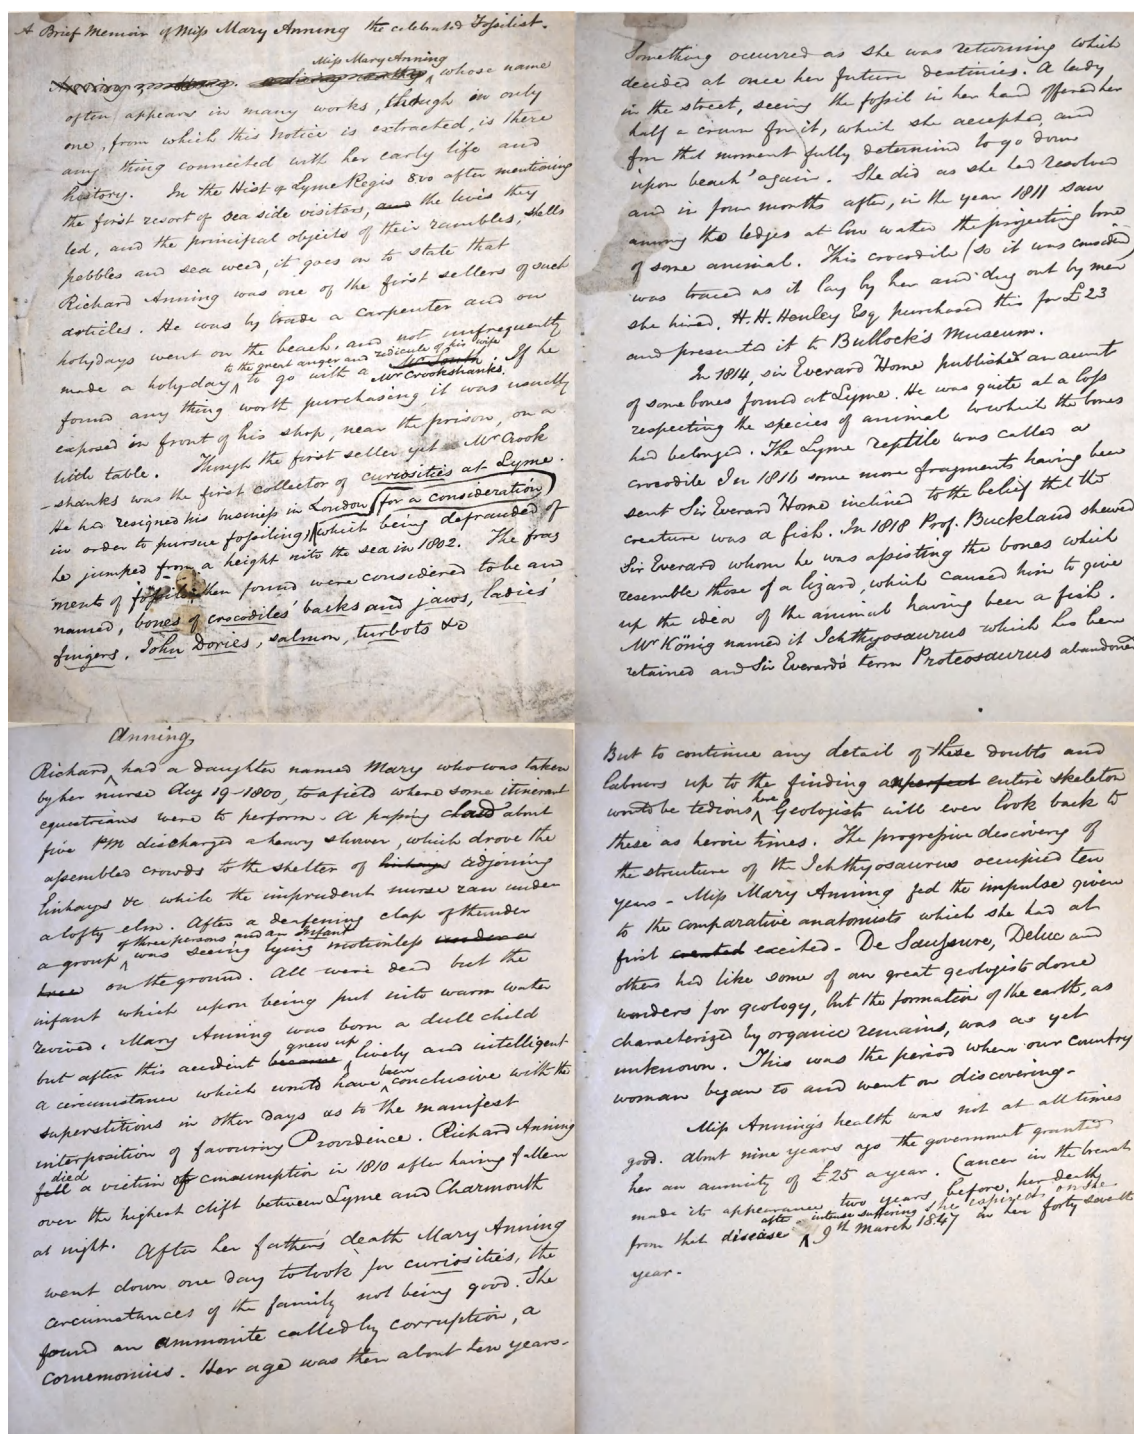 A Brief Memoir of Miss Mary Anning the celebrated Fossilist.
Miss Mary Anning whose name
often appears in many works, though in only
one, from which this notice is extracted, is there
any thing connected with her early life and
history. In the Hist of Lyme Regis &co after mentioning
the first resort of sea side visitors, and the lives they
led, and the principal objects of their rambles, shells
pebbles and sea weed, it goes on to state that
Richard Anning was one of the first sellers of such
articles. He was by trade a carpenter and on
holydays went on the beach, and not unfrequently
made a holyday to the great anger and ridicule of his wife to go with a Mr Crookshanks. If he
found any thing worth purchasing it was usually
exposed in front of his shop, near the prison, on a
little table. Though the first seller yet a Mr Crook
-shanks was the first collector of curiosities at Lyme.
He had resigned his business in London (for a consideration)
in order to pursue fossiling, which being defrauded of
he jumped from a height into the sea in 1802. The frag
ments of fossils then found were considered to be and
named, bones of crocodiles' backs and jaws, ladies'
fingers, John Dories, salmon, turbots &c
Richard Anning had a daughter named Mary who was taken
by her nurse Aug 19-1800, to a field where some itinerant
equestrians were to perform. A passing cloud about
five PM discharged a heavy shower, which drove the
assembled crowds to the shelter of linhays adjoining
linhays &c while the imprudent nurse ran under
a lofty elm. After a deafening clap of thunder
a group of three persons and an Infant was seeing lying motionless under a
tree on the ground. All were dead but the
infant which upon being put into warm water
revived. Mary Anning was born a dull child
but after this accident became grew up lively and intelligent
a circumstance which would have been conclusive with the
superstitious in other days as to the manifest
interposition of favouring Providence. Richard Anning
fell died a victim of consumption in 1810 after having fallen
over the highest clift between Lyme and Charmouth
at night. After her father's death Mary Anning
went down one day to look for curiosities, the
circumstances of the family not being good. She
found an ammonite called by corruption, a
cornemonius. Her age was then about ten years.
Something occurred as she was returning which
decided at once her future destinies. A lady
in the street, seeing the fossil in her hand offered her
half a crown for it, which she accepted, and
from that moment fully determind to go down
'upon beach' again. She did as she had resolved
and in four months after, in the year 1811 saw
among the ledges at low water the projecting bone
of some animal. This crocodile (so it was considered)
was traced as it lay by her and dug out by men
she hired. H.H. Henley Esq purchased this for £23
and presented it to Bullock's Museum.
In 1814, sir Everard Home published an account
of some bones found at Lyme. He was quite at a loss
respecting the species of animal to which the bones
had belonged. The Lyme reptile was called a
crocodile In 1816 some more fragments having been
sent Sir Everard Home inclined to the belief that the
creature was a fish. In 1818 Prof. Buckland shewed
Sir Everard whom he was assisting the bones which
resemble those of a lizard, which caused him to give
up the idea of the animal having been a fish.
Mr König named it Ichthyosaurus which has been
retained and Sir Everard's term Proteosaurus abandoned
But to continue any detail of these doubts and
labours up to the finding a perfect entire skeleton
would be tedious here, Geologists will ever look back to
these as heroic times. The progressive discovery of
the structure of the Ichthyosaurus occupied ten
years - Miss Mary Anning fed the impulse given
to the comparative anatomists which she had at
first created excited. De Saussure, Deluc and
others had like some of our great geologists done
wonders for geology, but the formation of the earth, as
characterized by organic remains, was as yet
unknown. This was the period when our country
woman began to and went on discovering.
Miss Anning's health was not at all times
good. About nine years ago the government granted
her an annuity of £25 a year. Cancer in the breast
made its appearance two years before her death
from that disease after intense suffering she expired on the 9th March 1847 in her forty seventh
year.